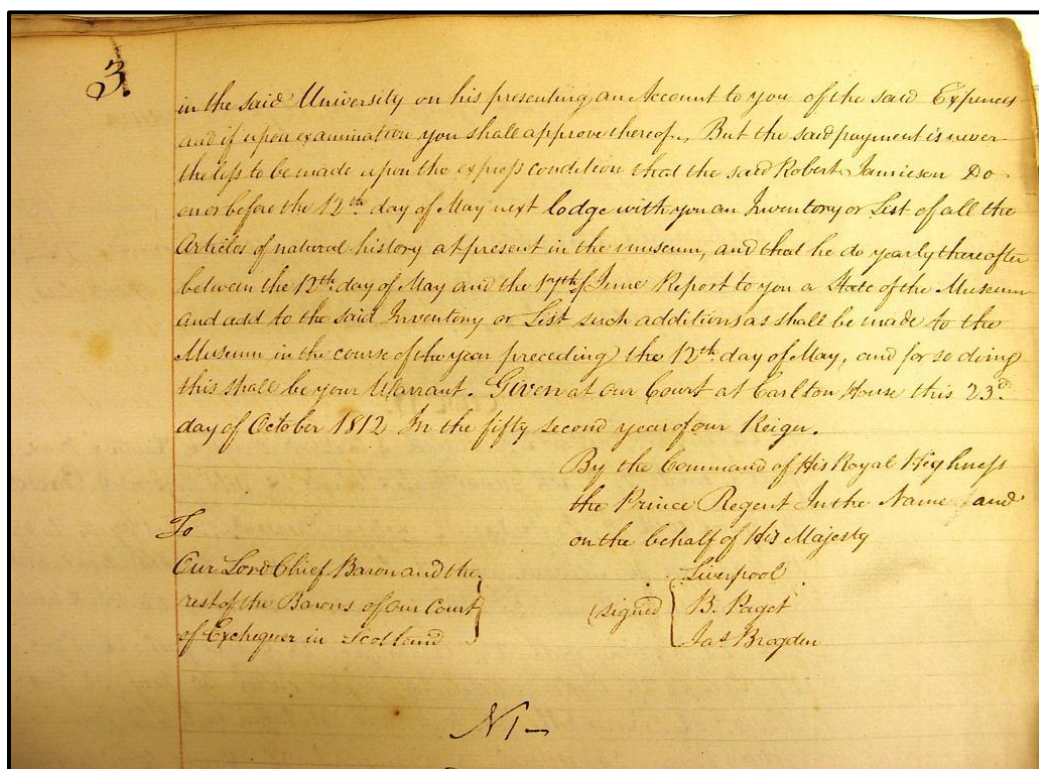 3.
in the said University on his presenting an Account to you of the said Expences
and if upon examination you shall approve thereof, But the said payment is never
theless to be made upon the express condition that the said Robert Jamieson Do
on or before the 12th day of May next lodge with you an Inventory or List of all the
Articles of natural history at present in the museum, and that he do yearly thereafter
between the 12th day of May and the 17th of June Report to you a State of the Museum
and add to the said Inventory or List such additions as shall be made to the
Museum in the course of the year preceding the 12th day of May, and for so doing
this shall be your Warrant. Given at our Court at Carlton House this 23d.
day of October 1812 In the fifty second year of our Reign.
By the Command of His Royal Highness
the Prince Regent In the Name and
on the behalf of His Majesty
To
Our Lord Chief Baron and the
rest of the Barons of our Court
of Exchequer in Scotland
(signed
Liverpool
B. Paget
Jas Brogden